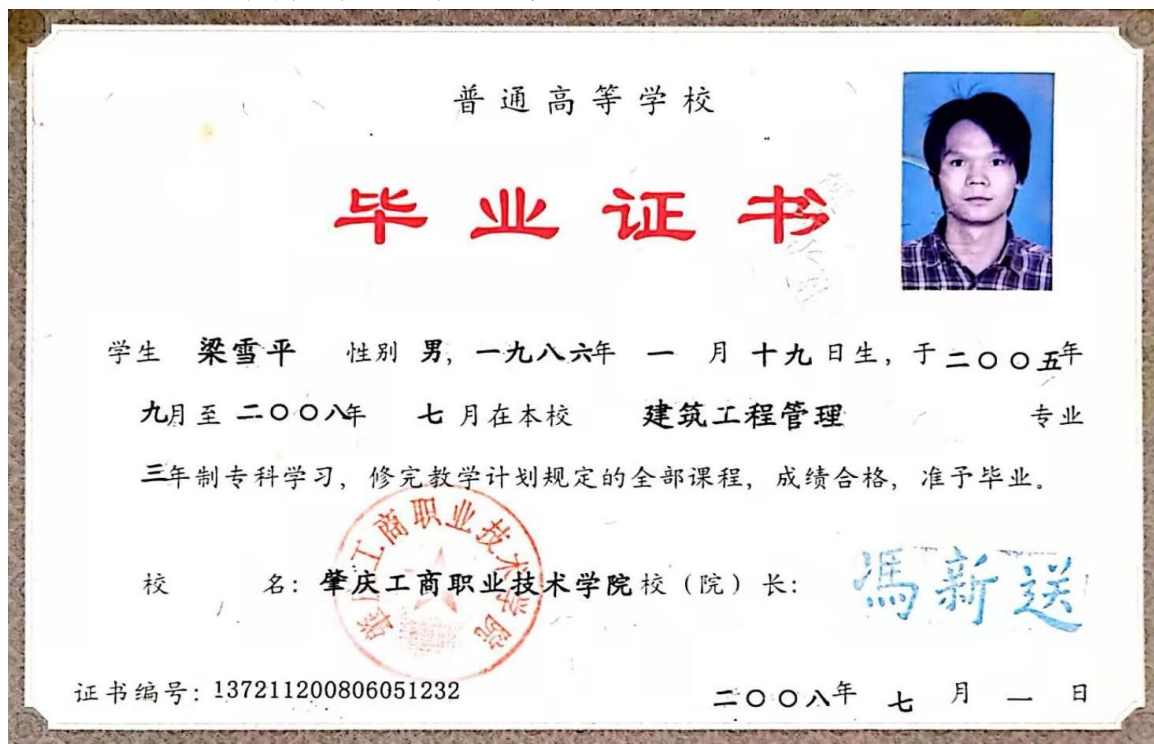 普通高等学校
毕业证书
学生 梁雪平 性别 男，一九八六年 一 月 十九 日生，于二〇〇五年
九月至二〇〇八年 七 月在本校 建筑工程管理 专业
三年制专科学习，修完教学计划规定的全部课程，成绩合格，准予毕业。
肇庆工商职业技术学院
校 名：肇庆工商职业技术学院校（院）长：馮新送
证书编号：137211200806051232 二〇〇八年 七 月 一 日